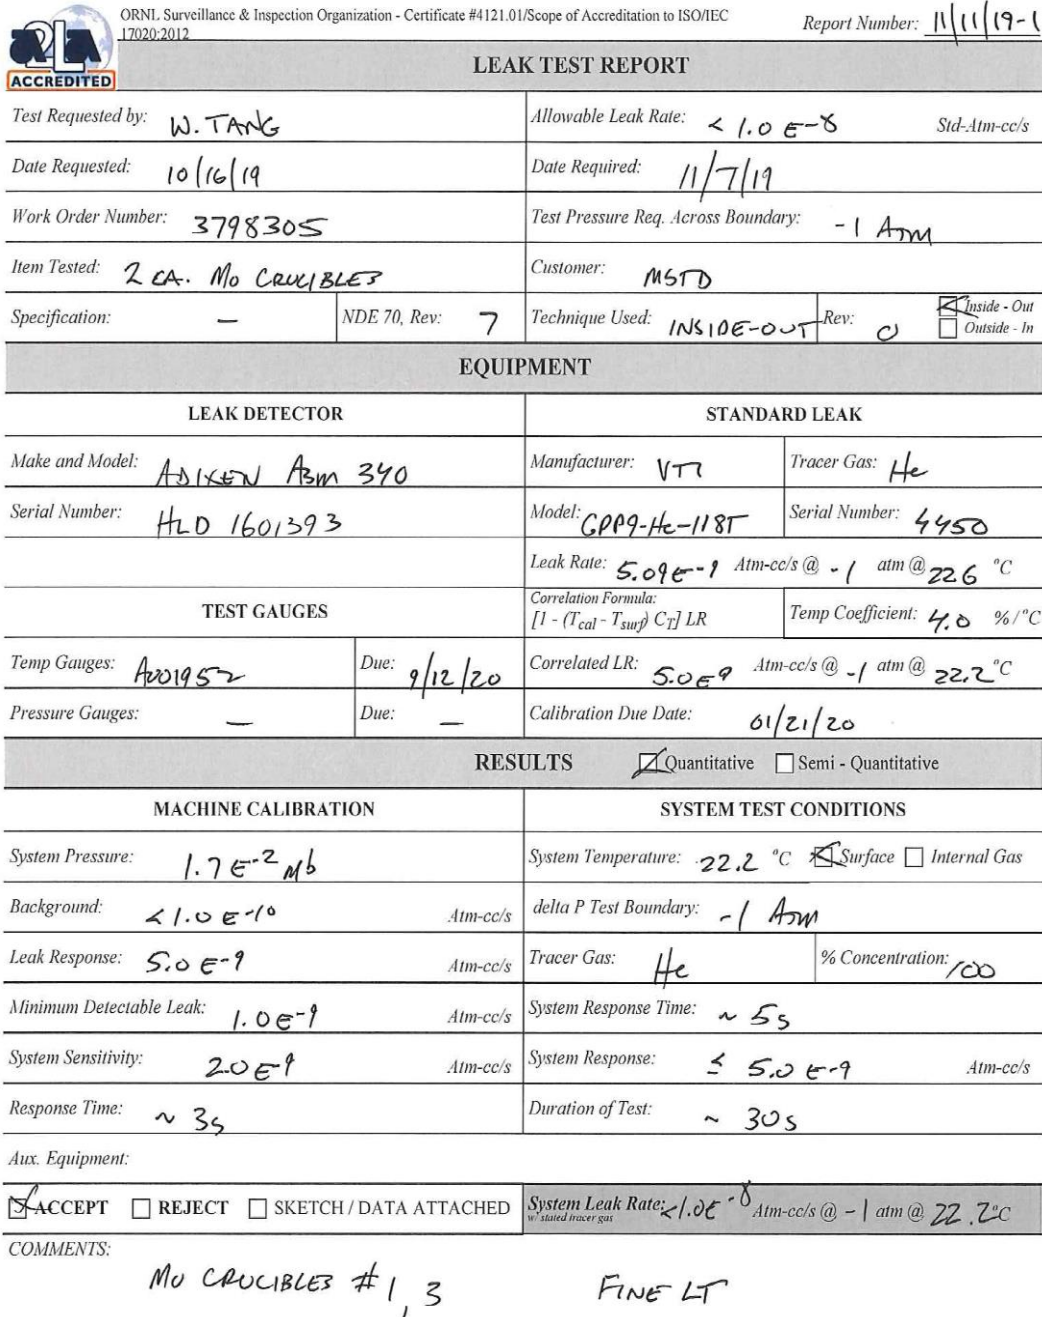 ORNL Surveillance & Inspection Organization - Certificate #4121.01/Scope of Accreditation to ISO/IEC
17020:2012
Report Number: 11/11/19-1
A2LA
ACCREDITED
LEAK TEST REPORT
Test Requested by: W. TANG
Allowable Leak Rate: < 1.0 E-8 Std-Atm-cc/s
Date Requested: 10/16/19
Date Required: 11/7/19
Work Order Number: 3798305
Test Pressure Req. Across Boundary: -1 ATM
Item Tested: 2 EA. Mo CRUCIBLES
Customer: MSTD
Specification: — NDE 70, Rev: 7
Technique Used: INSIDE-OUT Rev: 0 Inside - Out
Outside - In
EQUIPMENT
LEAK DETECTOR
STANDARD LEAK
Make and Model: ADIXEN ASM 340
Manufacturer: VTI Tracer Gas: He
Serial Number: HLD 1601393
Model: GPP9-He-118T Serial Number: 4450
Leak Rate: 5.09E-9 Atm-cc/s @ -1 atm @ 22.6 °C
TEST GAUGES
Correlation Formula:
[1 - (Tcal - Tsurf) CT] LR
Temp Coefficient: 4.0 %/°C
Temp Gauges: A001952 Due: 9/12/20
Correlated LR: 5.0E9 Atm-cc/s @ -1 atm @ 22.2 °C
Pressure Gauges: — Due: —
Calibration Due Date: 01/21/20
RESULTS Quantitative Semi - Quantitative
MACHINE CALIBRATION
SYSTEM TEST CONDITIONS
System Pressure: 1.7 E-2 Mb
System Temperature: 22.2 °C Surface Internal Gas
Background: < 1.0 E-10 Atm-cc/s
delta P Test Boundary: -1 ATM
Leak Response: 5.0 E-9 Atm-cc/s
Tracer Gas: He % Concentration: 100
Minimum Detectable Leak: 1.0E-9 Atm-cc/s
System Response Time: ~ 5s
System Sensitivity: 2.0E9 Atm-cc/s
System Response: ≤ 5.0 E-9 Atm-cc/s
Response Time: ~ 3s
Duration of Test: ~ 30s
Aux. Equipment:
ACCEPT REJECT SKETCH / DATA ATTACHED
System Leak Rate: <1.0E-8 Atm-cc/s @ -1 atm @ 22.2°C
w/ stated tracer gas
COMMENTS:
Mo CRUCIBLES #1, 3 FINE LT